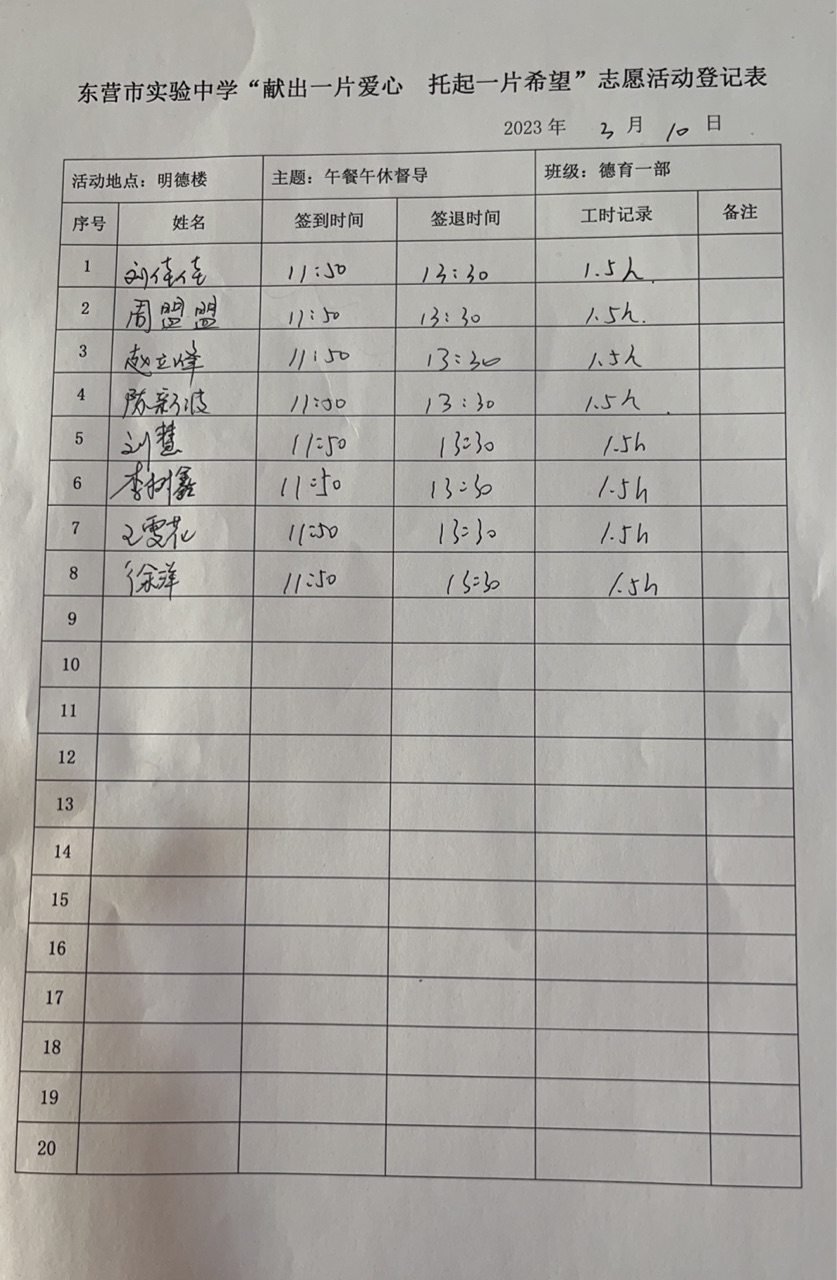 东营市实验中学“献出一片爱心 托起一片希望”志愿活动登记表
2023 年 3 月 10 日
活动地点：明德楼 主题：午餐午休督导 班级：德育一部
序号 姓名 签到时间 签退时间 工时记录 备注
1 刘佳佳 11:50 13:30 1.5h
2 周盟盟 11:50 13:30 1.5h.
3 赵立峰 11:50 13:30 1.5h
4 陈新波 11:50 13:30 1.5h
5 刘慧 11:50 13:30 1.5h
6 李树鑫 11:50 13:30 1.5h
7 王雪花 11:50 13:30 1.5h
8 徐洋 11:50 13:30 1.5h
9
10
11
12
13
14
15
16
17
18
19
20